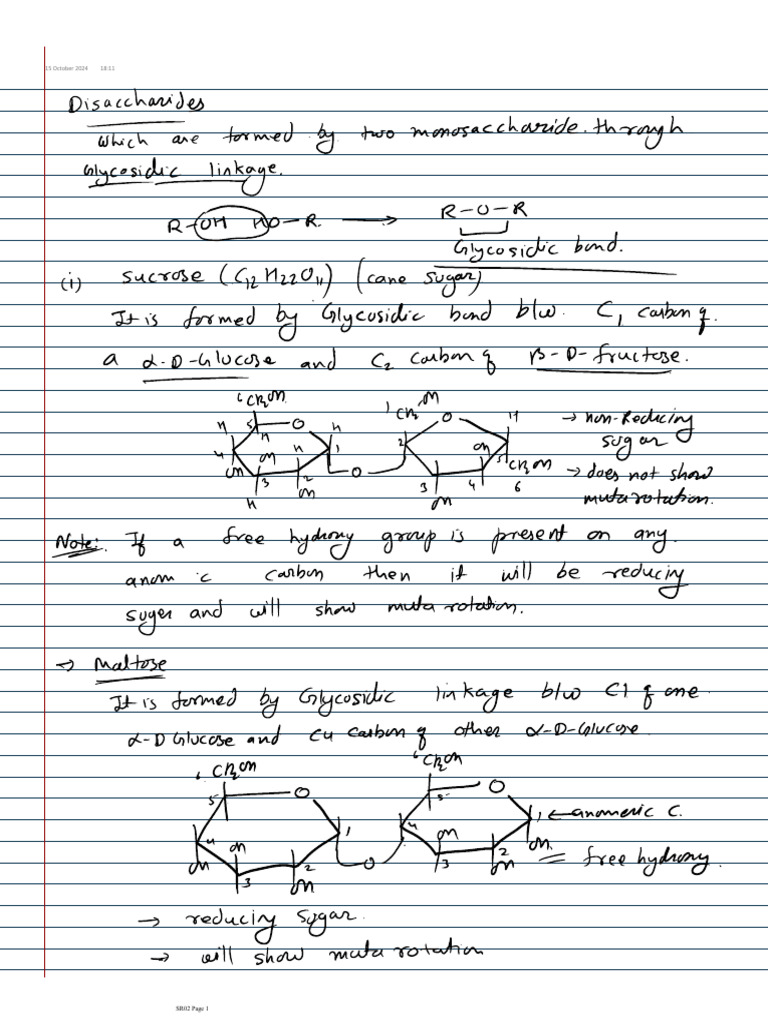 15 October 2024 18:11
Disaccharides
which are formed by two monosaccharide. through
Glycosidic linkage.
R-OH HO-R. → R-O-R
Glycosidic bond.
(i) sucrose (C12H22O11) (cane sugar)
It is formed by Glycosidic bond b/w. C1 carbon of.
a α-D-Glucose and C2 carbon of β-D-fructose.
6 CH2OH 1 CH2OH
H 5 O H O H → non-Reducing
H sugar
4 OH H 1 2 OH 5
OH 3 2 O CH2OH → does not show
OH 3 4 6 mutarotation.
H OH
Note: If a free hydroxy group is present on any.
anomic carbon then it will be reducing
suger and will show mutarotation.
→ Maltose
It is formed by Glycosidic linkage b/w C1 of one
α-D Glucose and C4 carbon of other α-D-Glucose
6 CH2OH 6 CH2OH
5 O 5 O
1 4 1 ← anomeric C.
4 OH OH OH.
OH 2 O 3 2 = free hydroxy.
3 OH OH
→ reducing sugar.
→ will show mutarotation
SR02 Page 1